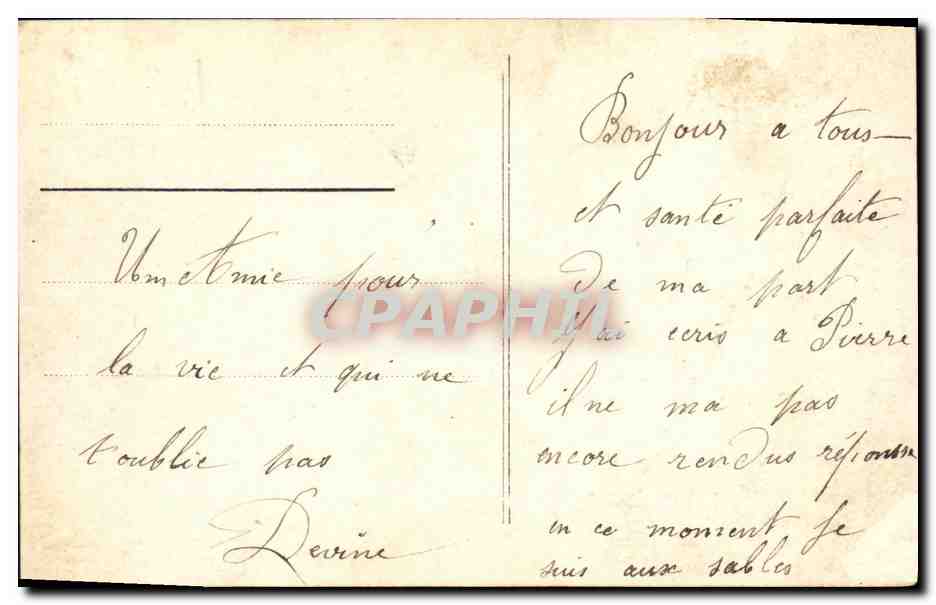 Um Amie pour
la vie et qui ne
t'oublie pas
Devine
Bonjour a tous
et santé parfaite
de ma part
J'ai ecris a Pierre
il ne ma pas
encore rendus réponse
en ce moment je
suis aux sables
CPAPHIL